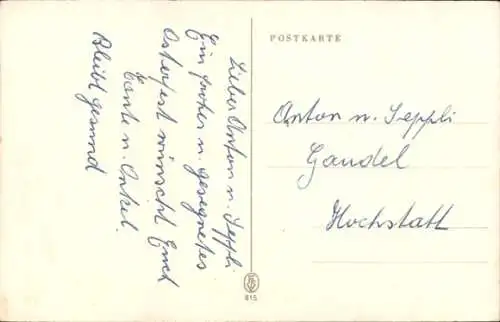 Lieber Anton u. Seppli
Ein frohes u. gesegnetes
Osterfest wünscht Euch
Tante u. Onkel.
Bleibt gesund
POSTKARTE
Anton u. Seppli
Gandel
Hochstatt
815